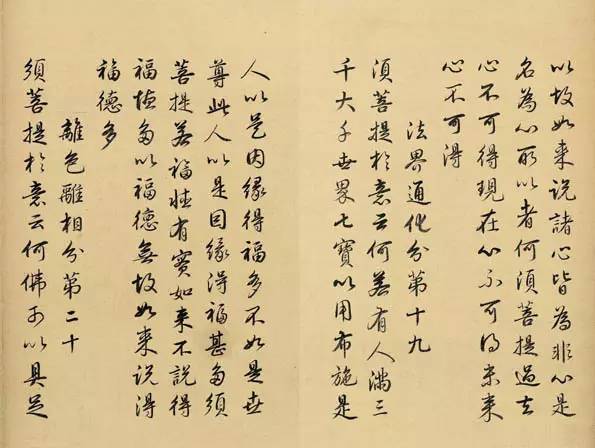 以故如来說諸心皆為非心是
名為心所以者何須菩提過去
心不可得現在心不可得未来
心不可得
法界通化分第十九
須菩提於意云何若有人滿三
千大千世界七寶以用布施是
人以是因緣得福多不如是世
尊此人以是因緣得福甚多須
菩提若福德有實如来不說得
福德多以福德無故如来說得
福德多
離色離相分第二十
須菩提於意云何佛可以具足